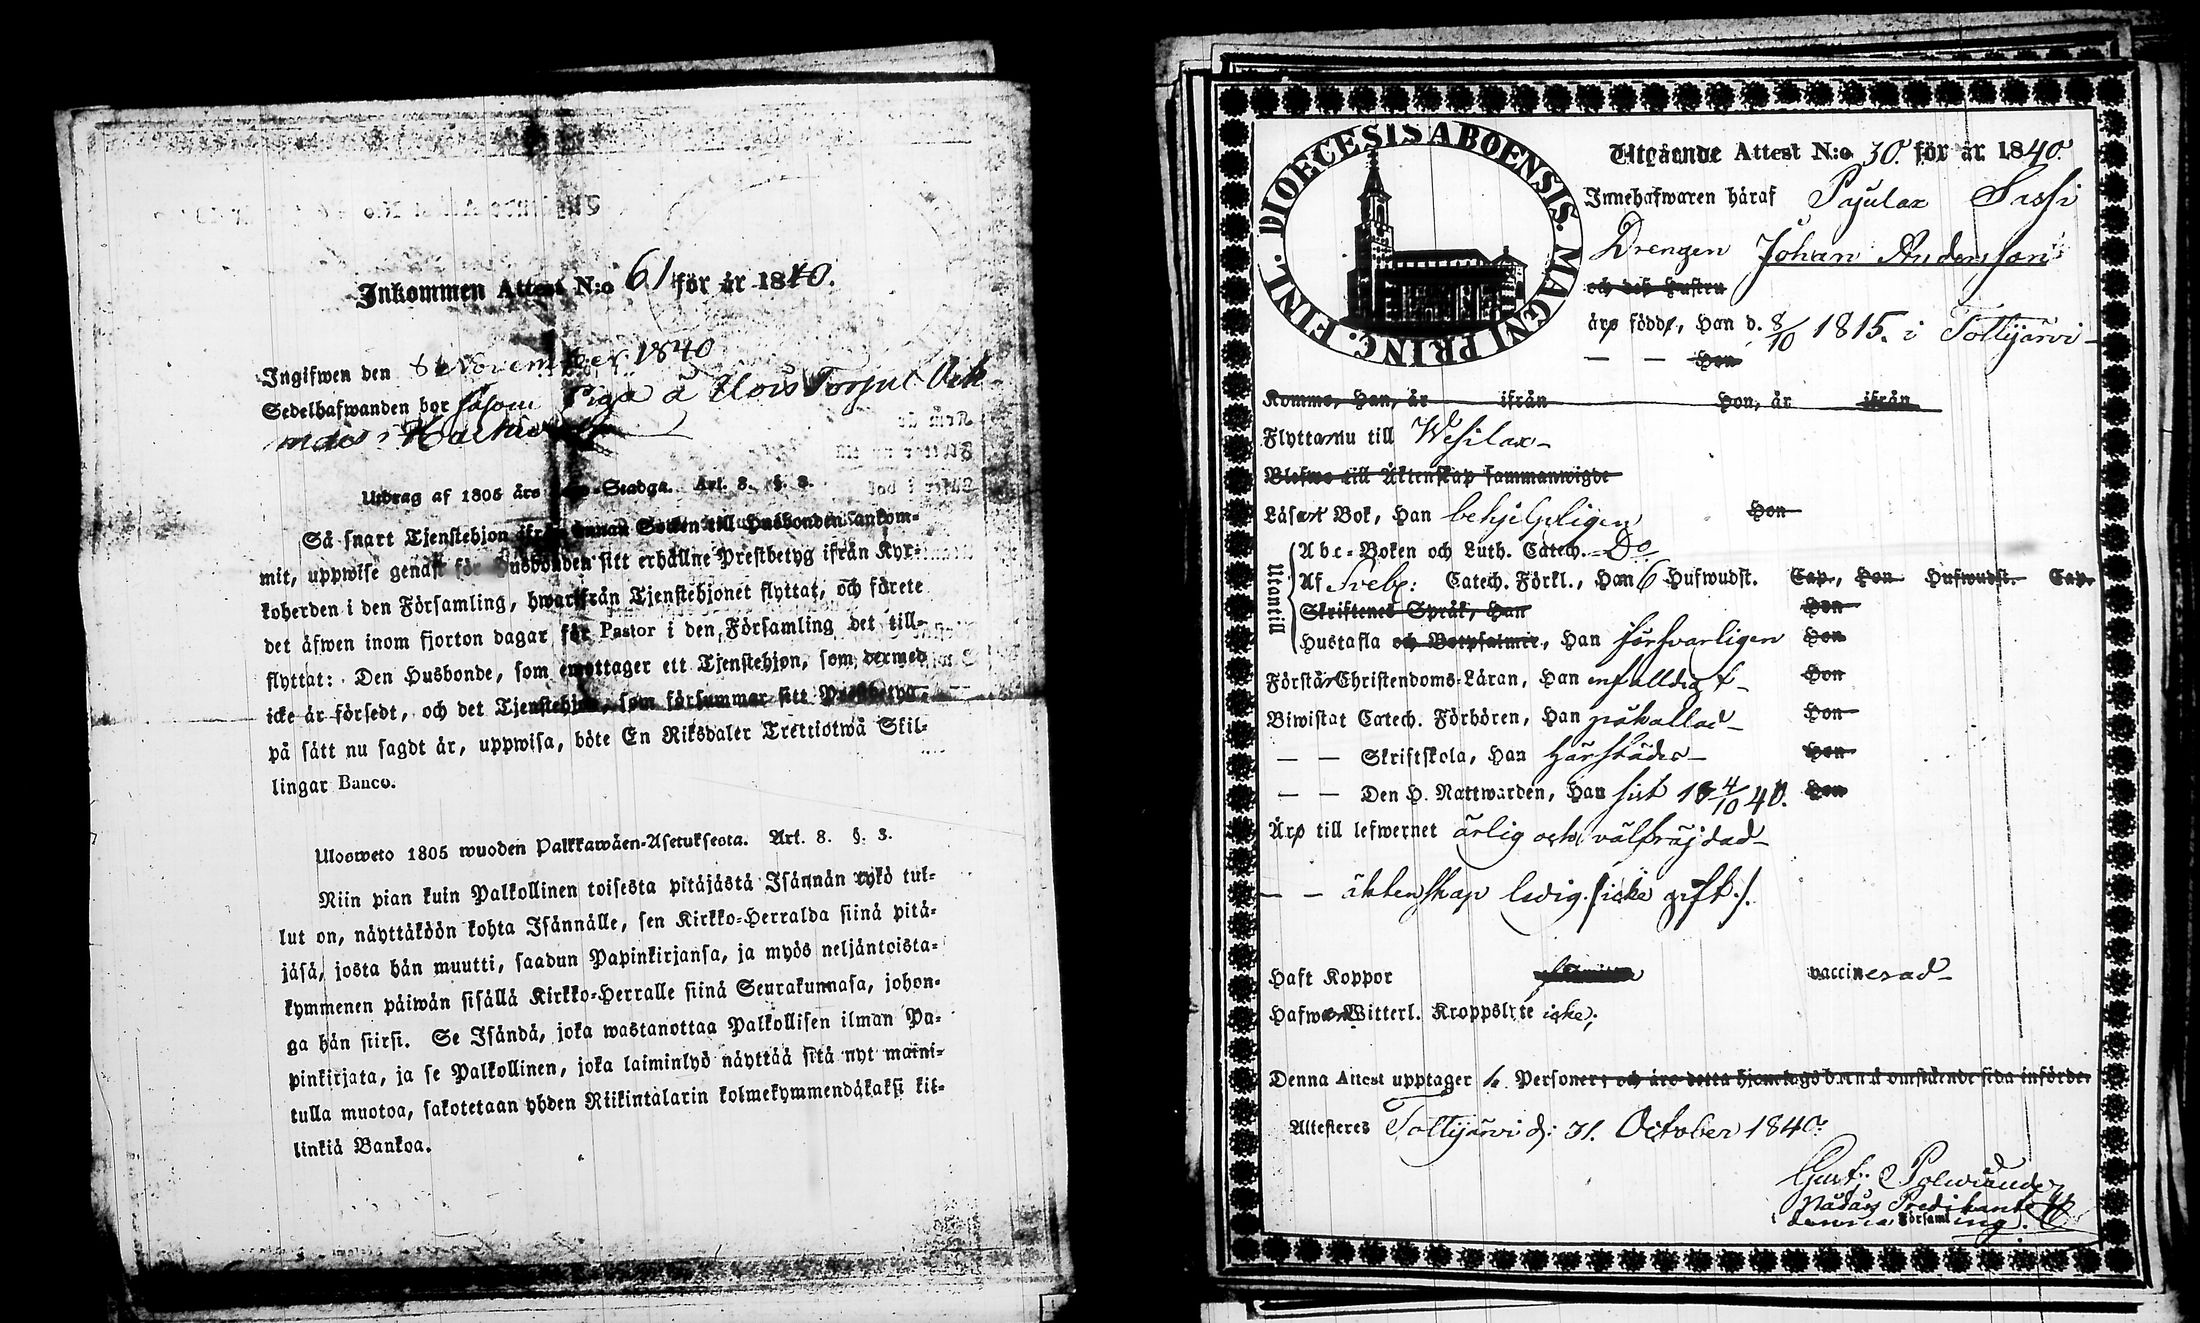 Inkommen Attest N:o 61 för år 1840.
Ingifwen den November 1840
Sedelhafwanden bor såsom Piga å
Utdrag af 1805 års Stadga. Art. 8. §. 3.
Så snart Tjenstehjon ifrån annan Socken till Husbonden ankom-
mit, uppwise genast för Husbonden sitt erhållne Prestbetyg ifrån Kyr-
koherden i den Församling, hwarifrån Tjenstehjonet flyttat, och förete
det äfwen inom fjorton dagar för Pastor i den Församling det till-
flyttat: Den Husbonde, som emottager ett Tjenstehjon, som dermed
icke är försedt, och det Tjenstehjon, som försummar sitt Prestbetyg,
på sätt nu sagdt är, uppwisa, böte En Riksdaler Trettiotwå Skil-
lingar Banco.
Ulosweto 1805 wuoden Palkkawäen-Asetuksesta. Art. 8. §. 3.
Niin pian kuin Palkollinen toisesta pitäjästä Isännän tykö tul-
lut on, näyttäköön kohta Isännälle, sen Kirkko-Herralda siinä pitä-
jäsä, josta hän muutti, saadun Papinkirjansa, ja myös neljäntoista-
kymmenen päiwän sisällä Kirkko-Herralle siinä Seurakunnasa, johon-
ga hän siirsi. Se Isändä, joka wastanottaa Palkollisen ilman Pa-
pinkirjata, ja se Palkollinen, joka laiminlyö näyttää sitä nyt maini-
tulla muotoa, sakotetaan yhden Riikintalarin kolmekymmendäkaksi kil-
linkiä Bankoa.
DIOECESIS ABOENSIS. MAGNI PRINC. FINL.
Utgående Attest N:o 30. för år 1840.
Innehafwaren häraf Pyulax Sussi
Drengen Johan Andersson
och dess Hustru
äro födde, Han d. 8/10 1815. i Tottijärvi
— — Hon
Komme, Han, år ifrån Hon, år ifrån
Flyttar nu till Wesilax
Blefwo till Äktenskap sammanwigde
Läser i Bok, Han behjelpligen Hon
Utantill
Abc-Boken och Luth. Catech. Do
Af Sveb: Catech. Förkl., Han 6 Hufwudst. Cap., Hon Hufwudst. Cap.
Skriftenes Språk, Han Hon
Hustafla och Botpsalmer, Han försvarligen Hon
Förstår Christendoms-Läran, Han enfalldigt Hon
Biwistat Catech. Förhören, Han påkallad Hon
— — Skriftskola, Han härstädes Hon
— — Den H. Nattwarden, Han sist 18 4/10 40. Hon
Äro till lefwernet ärlig och välfräjdad
— — äktenskap ledig /:icke gift:/.
Haft Koppor vaccinerad
Hafwa Witterl. Kroppslyte icke;
Denna Attest upptager 1. Personer: och äro detta hjonelags barn å omstående sida införde.
Attesteres Tottijärvi d: 31. October 1840.
Gust: Polviander
Nådårs Predikant
i denna Församling.